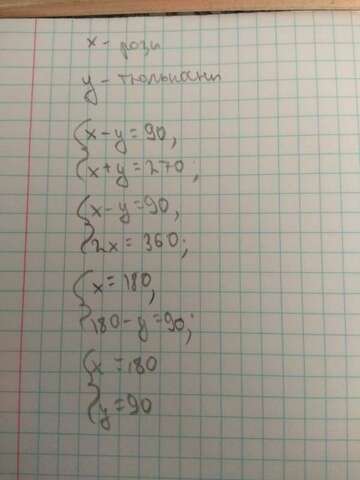 x - рози
y - тюльпани
{x - y = 90,
x + y = 270;
{x - y = 90,
2x = 360;
{x = 180,
180 - y = 90;
{x = 180
y = 90